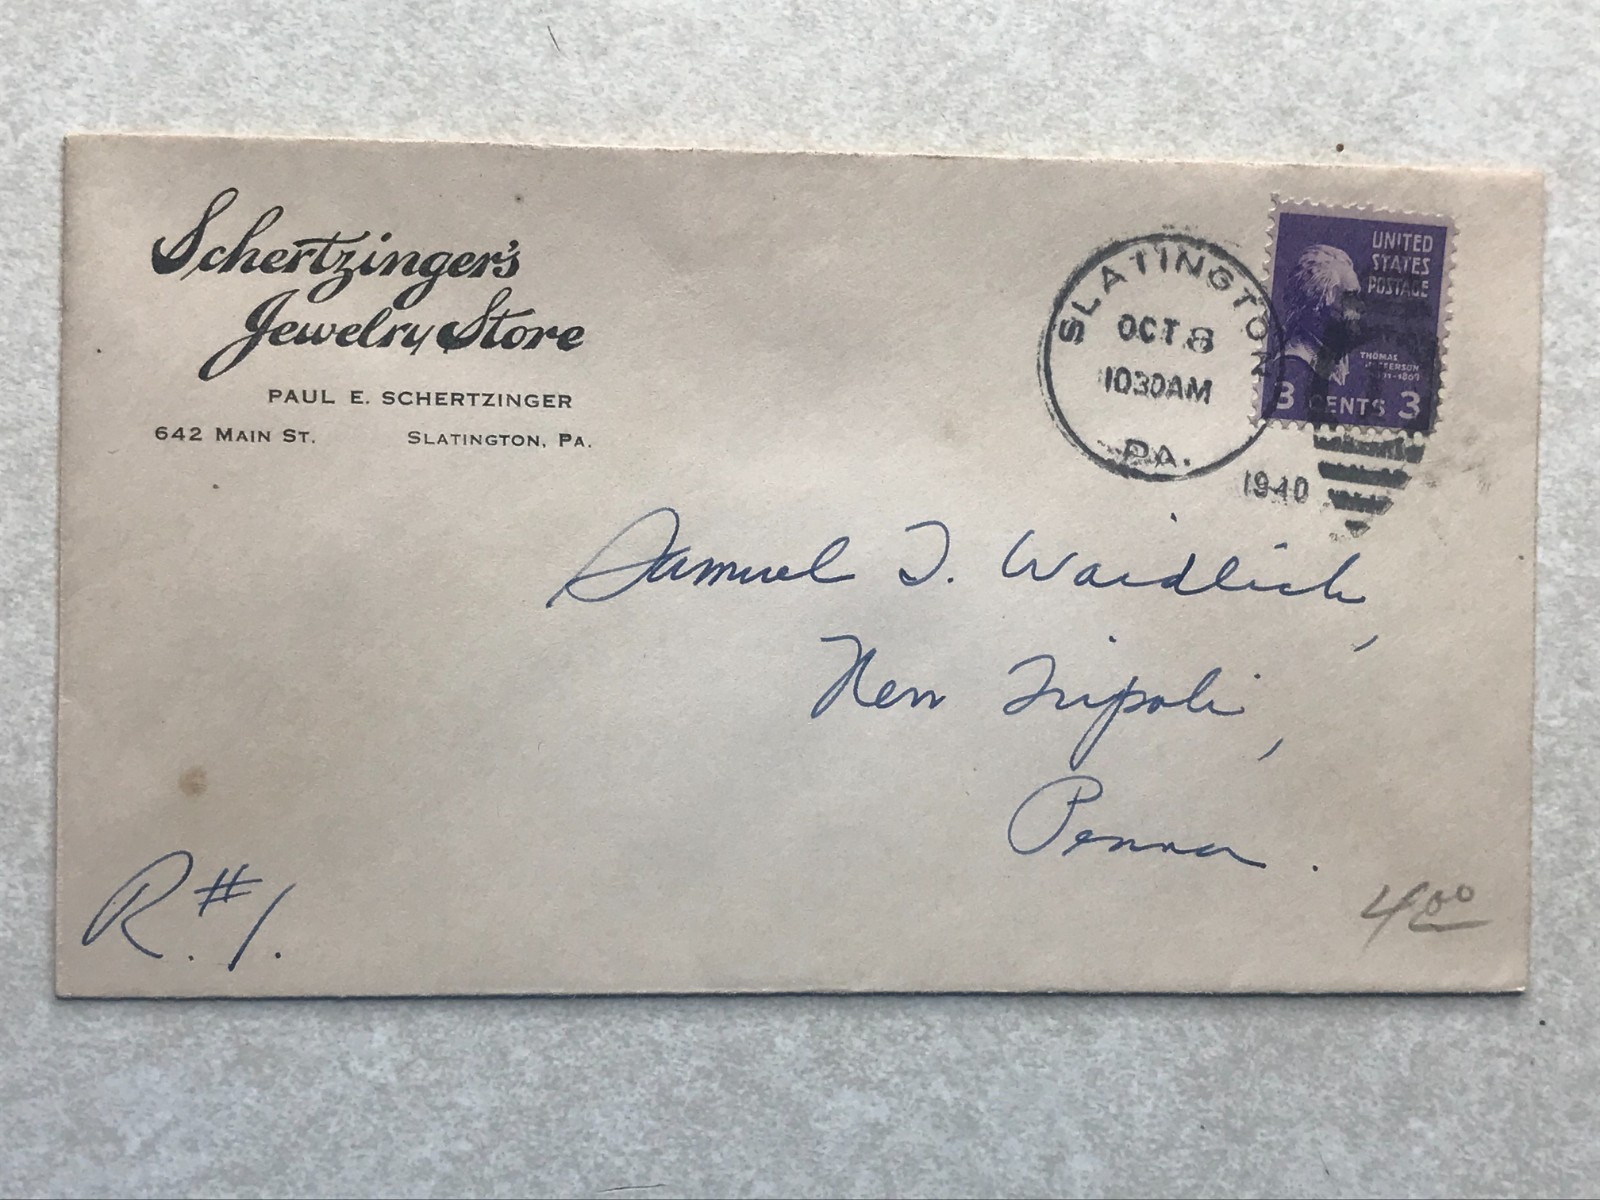 Schertzinger's
Jewelry Store
PAUL E. SCHERTZINGER
642 MAIN ST. SLATINGTON, PA.
SLATINGTON
OCT. 8
1030AM
PA.
1940
UNITED
STATES
POSTAGE
THOMAS
JEFFERSON
3 CENTS 3
Samuel T. Waidlich,
New Tripoli,
Penna.
R.#1.
4.00